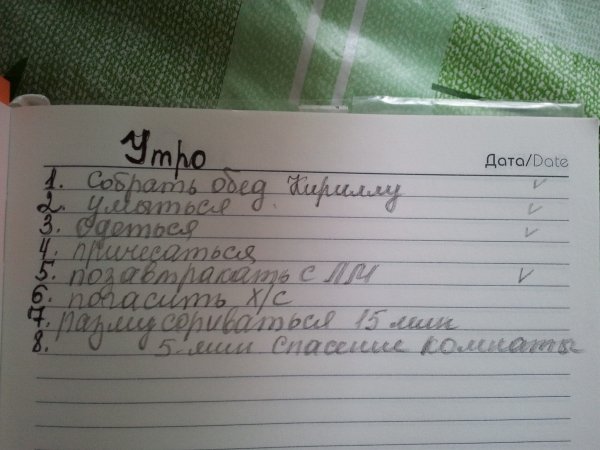 Утро
Дата/Date
1. собрать обед Кириллу ✓
2. умыться ✓
3. одеться ✓
4. причесаться
5. позавтракать с ЛМ ✓
6. погасить х/с
7. размусориваться 15 мин
8. 5-мин спасение комнаты